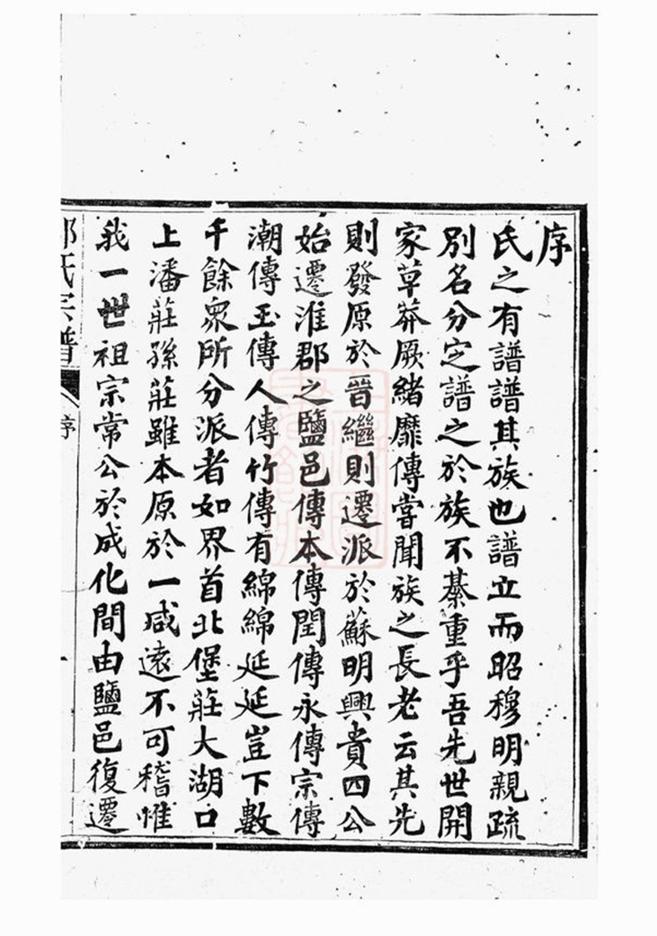 序
氏之有譜譜其族也譜立而昭穆明親疏
別名分定譜之於族不綦重乎吾先世開
家草莽厥緒靡傳嘗聞族之長老云其先
則發原於晉繼則遷派於蘇明興貴四公
始遷淮郡之鹽邑傳本傳閏傳永傳宗傳
潮傳玉傳人傳竹傳有綿綿延延豈下數
千餘眾所分派者如界首北堡莊大湖口
上潘莊孫莊雖本原於一咸遠不可稽惟
我一世祖宗常公於成化間由鹽邑復遷
氏宗譜
序
一